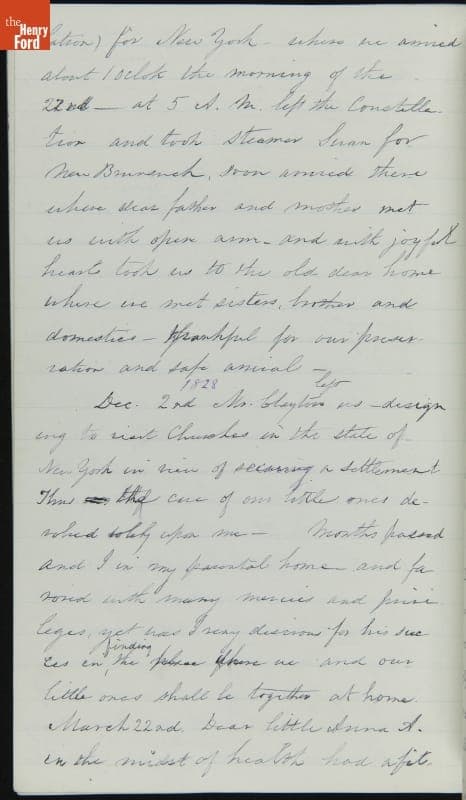 the
Henry
Ford
lation) for New York - where we arrived
about 1 oclok the morning of the
22nd - at 5 A. M. left the Constella-
tion and took steamer Swan for
New Brunswick, soon arrived there
where dear father and mother met
us with open arm - and with joyful
hearts took us to the old dear home
where we met sisters, brother and
domestics - thankful for our preser-
vation and safe arrival -
1828 left
Dec. 2nd Mr. Clayton us - design
ing to visit Churches in the state of
New York in view of securing a settlement
Thus the care of our little ones de-
volved solely upon me - Months passed
and I in my parental home - and fa
vored with many mercies and privi
leges, yet was I very desirous for his suc
finding
ces in the place where we and our
little ones shall be together at home.
March 22nd. Dear little Anna A.
in the midst of health had a fit.